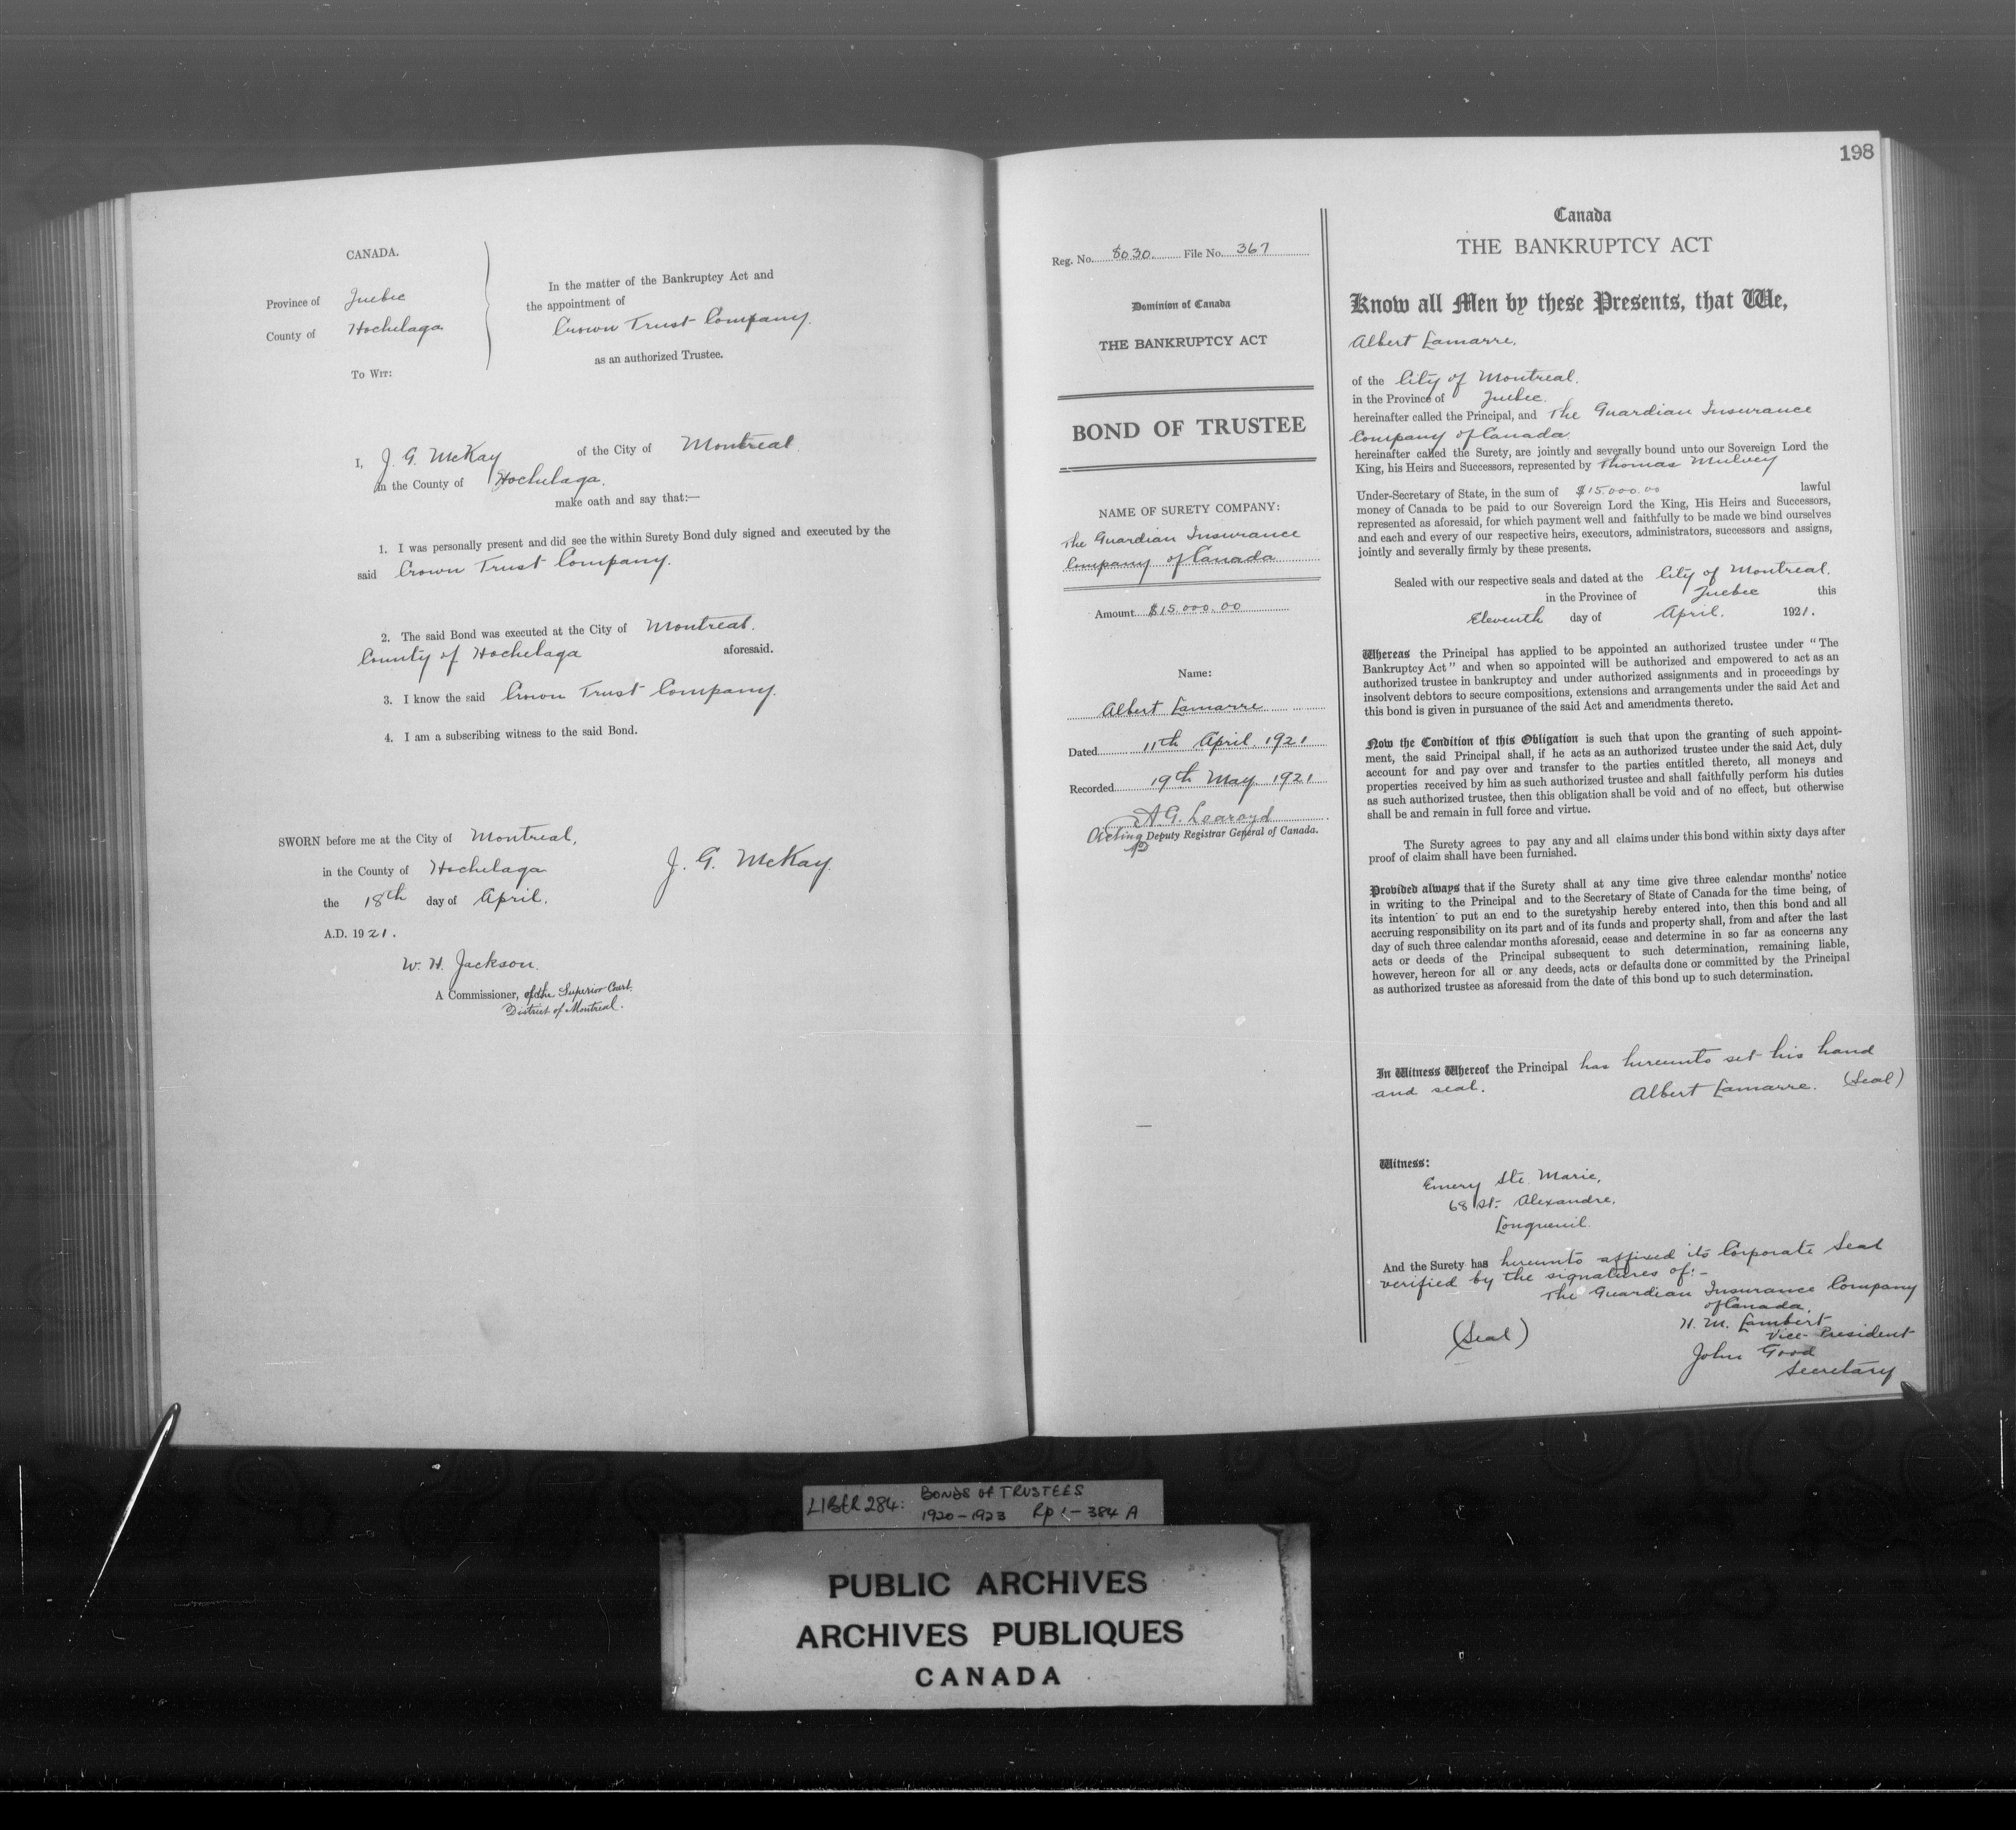 CANADA.
Province of Quebec
County of Hochelaga
To Wit:
In the matter of the Bankruptcy Act and
the appointment of
Crown Trust Company.
as an authorized Trustee.
I, J. G. McKay of the City of Montreal.
in the County of Hochelaga.
make oath and say that:—
1. I was personally present and did see the within Surety Bond duly signed and executed by the
said Crown Trust Company.
2. The said Bond was executed at the City of Montreal.
County of Hochelaga aforesaid.
3. I know the said Crown Trust Company.
4. I am a subscribing witness to the said Bond.
SWORN before me at the City of Montreal,
in the County of Hochelaga
the 18th day of April.
A.D. 1921.
J. G. McKay.
W. H. Jackson.
A Commissioner, of the Superior Court.
District of Montreal.
198
Reg. No. 8030. File No. 367
Dominion of Canada
THE BANKRUPTCY ACT
BOND OF TRUSTEE
NAME OF SURETY COMPANY:
The Guardian Insurance
Company of Canada
Amount $15.000.00
Name:
Albert Lamarre
Dated 11th April. 1921
Recorded 19th May 1921
A. G. Learoyd
Acting Deputy Registrar General of Canada.
Canada
THE BANKRUPTCY ACT
Know all Men by these Presents, that We,
Albert Lamarre.
of the City of Montreal.
in the Province of Quebec.
hereinafter called the Principal, and The Guardian Insurance
Company of Canada.
hereinafter called the Surety, are jointly and severally bound unto our Sovereign Lord the
King, his Heirs and Successors, represented by Thomas Mulvey
Under-Secretary of State, in the sum of $15.000.00 lawful
money of Canada to be paid to our Sovereign Lord the King, His Heirs and Successors,
represented as aforesaid, for which payment well and faithfully to be made we bind ourselves
and each and every of our respective heirs, executors, administrators, successors and assigns,
jointly and severally firmly by these presents.
Sealed with our respective seals and dated at the City of Montreal.
in the Province of Quebec this
Eleventh day of April. 1921.
Whereas the Principal has applied to be appointed an authorized trustee under "The
Bankruptcy Act" and when so appointed will be authorized and empowered to act as an
authorized trustee in bankruptcy and under authorized assignments and in proceedings by
insolvent debtors to secure compositions, extensions and arrangements under the said Act and
this bond is given in pursuance of the said Act and amendments thereto.
Now the Condition of this Obligation is such that upon the granting of such appoint-
ment, the said Principal shall, if he acts as an authorized trustee under the said Act, duly
account for and pay over and transfer to the parties entitled thereto, all moneys and
properties received by him as such authorized trustee and shall faithfully perform his duties
as such authorized trustee, then this obligation shall be void and of no effect, but otherwise
shall be and remain in full force and virtue.
The Surety agrees to pay any and all claims under this bond within sixty days after
proof of claim shall have been furnished.
Provided always that if the Surety shall at any time give three calendar months' notice
in writing to the Principal and to the Secretary of State of Canada for the time being, of
its intention to put an end to the suretyship hereby entered into, then this bond and all
accruing responsibility on its part and of its funds and property shall, from and after the last
day of such three calendar months aforesaid, cease and determine in so far as concerns any
acts or deeds of the Principal subsequent to such determination, remaining liable,
however, hereon for all or any deeds, acts or defaults done or committed by the Principal
as authorized trustee as aforesaid from the date of this bond up to such determination.
In Witness Whereof the Principal has hereunto set his hand
and seal.
Albert Lamarre. (Seal)
Witness:
Emery Ste. Marie,
68 St. Alexandre,
Longueuil.
And the Surety has hereunto affixed its Corporate Seal
verified by the signatures of:-
The Guardian Insurance Company
of Canada.
H. M. Lambert
Vice-President
(Seal)
John Good
Secretary
LIBER 284: BONDS OF TRUSTEES
1920-1923 Rp 1-384 A
PUBLIC ARCHIVES
ARCHIVES PUBLIQUES
CANADA